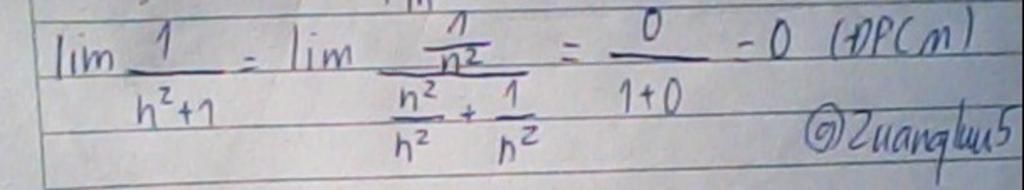 lim 1/(n²+1) = lim (1/n²)/(n²/n² + 1/n²) = 0/(1+0) = 0 (ĐPCM)
@Zuangluu5